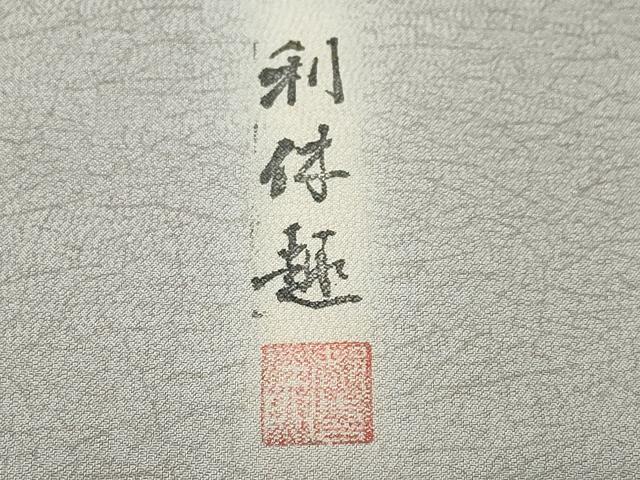 利休趣